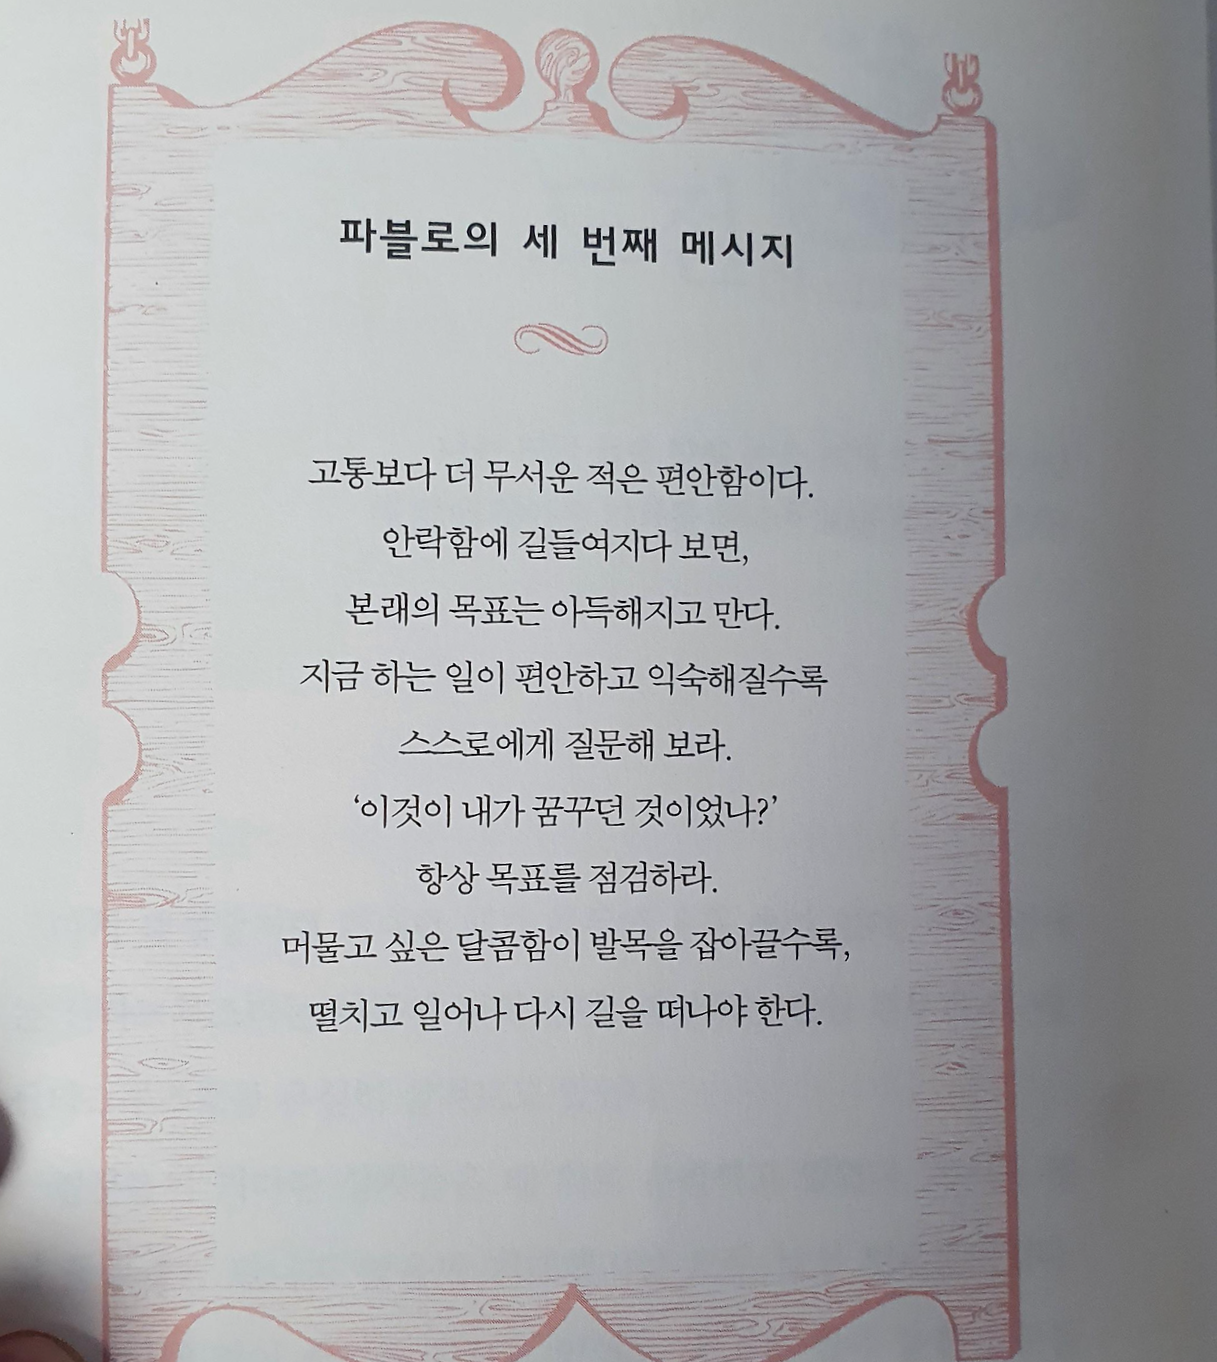 파블로의 세 번째 메시지
고통보다 더 무서운 적은 편안함이다.
안락함에 길들여지다 보면,
본래의 목표는 아득해지고 만다.
지금 하는 일이 편안하고 익숙해질수록
스스로에게 질문해 보라.
‘이것이 내가 꿈꾸던 것이었나?’
항상 목표를 점검하라.
머물고 싶은 달콤함이 발목을 잡아끌수록,
떨치고 일어나 다시 길을 떠나야 한다.